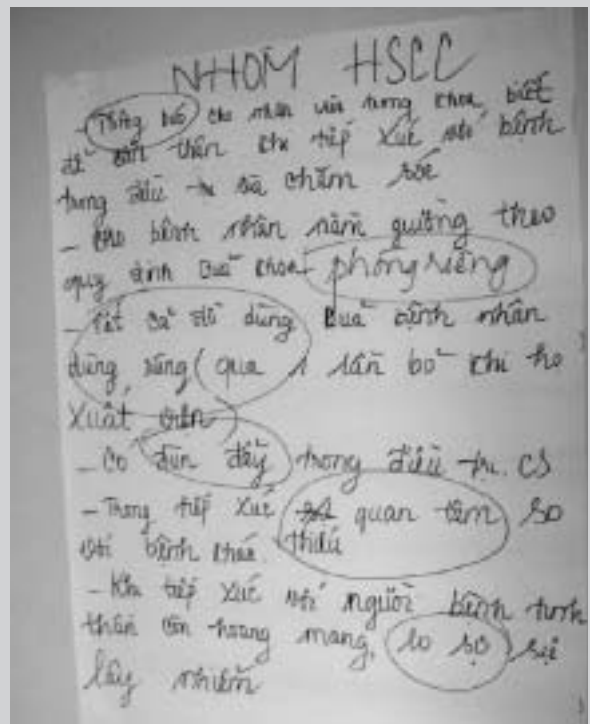 NHÓM HSCC
- Thông báo cho nhân viên trong khoa biết
để cẩn thận khi tiếp xúc với bệnh
trong điều trị và chăm sóc
- cho bệnh nhân nằm giường theo
quy định của khoa - phòng riêng
- Tất cả đồ dùng của bệnh nhân
dùng riêng (qua 1 lần bỏ khi họ
xuất viện)
- Co đùn đẩy trong điều trị. CS
- Trong tiếp xúc quan tâm so
với bệnh khác. thiếu
- Khi tiếp xúc với người bệnh tinh
thần còn hoang mang, lo sợ sự
lây nhiễm